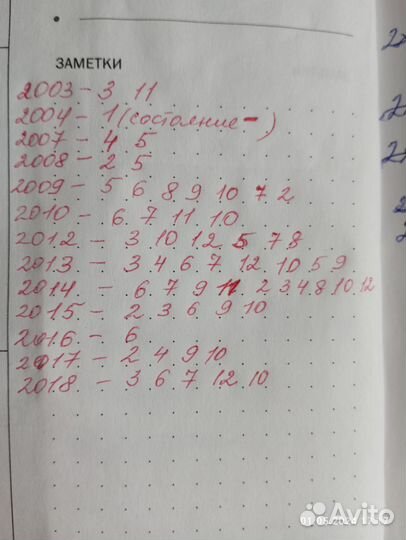 ЗАМЕТКИ
2003 - 3 11
2004 - 1 (состояние -)
2007 - 4 5
2008 - 2 5
2009 - 5 6 8 9 10 7 2
2010 - 6 7 11 10
2012 - 3 10 12 5 7 8
2013 - 3 4 6 7 12 10 5 9
2014 - 6 7 9 11 2 3 4 8 10 12
2015 - 2 3 6 9 10
2016 - 6
2017 - 2 4 9 10
2018 - 3 6 7 12 10
Avito